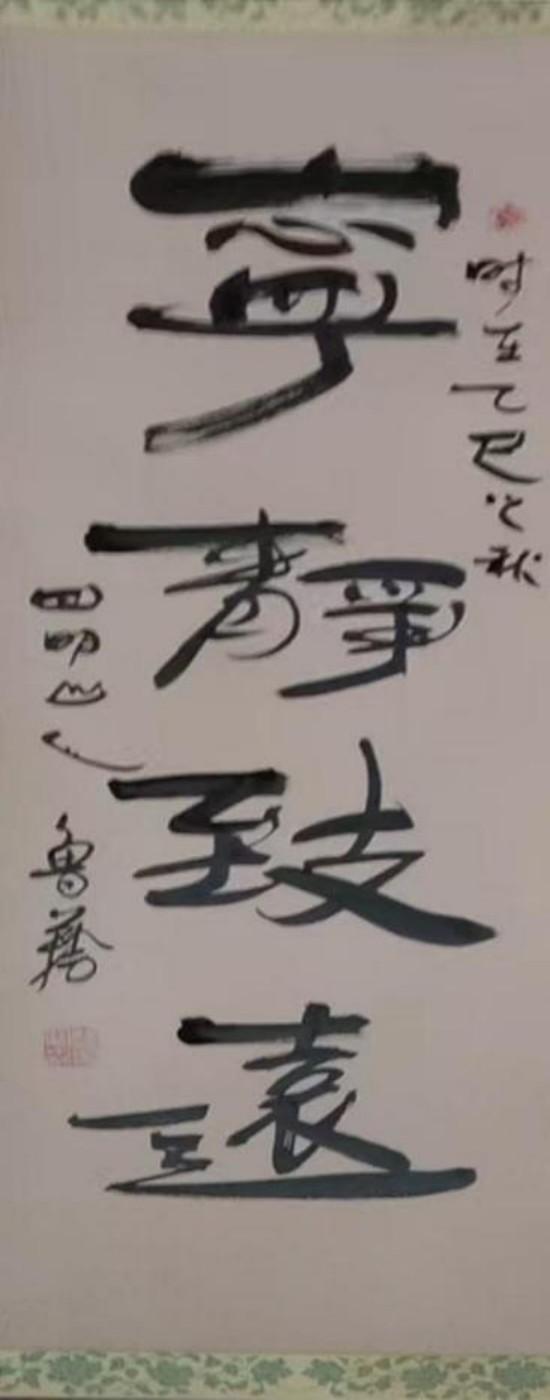 时在乙巳之秋
寧靜致遠
四明山人
魯藝